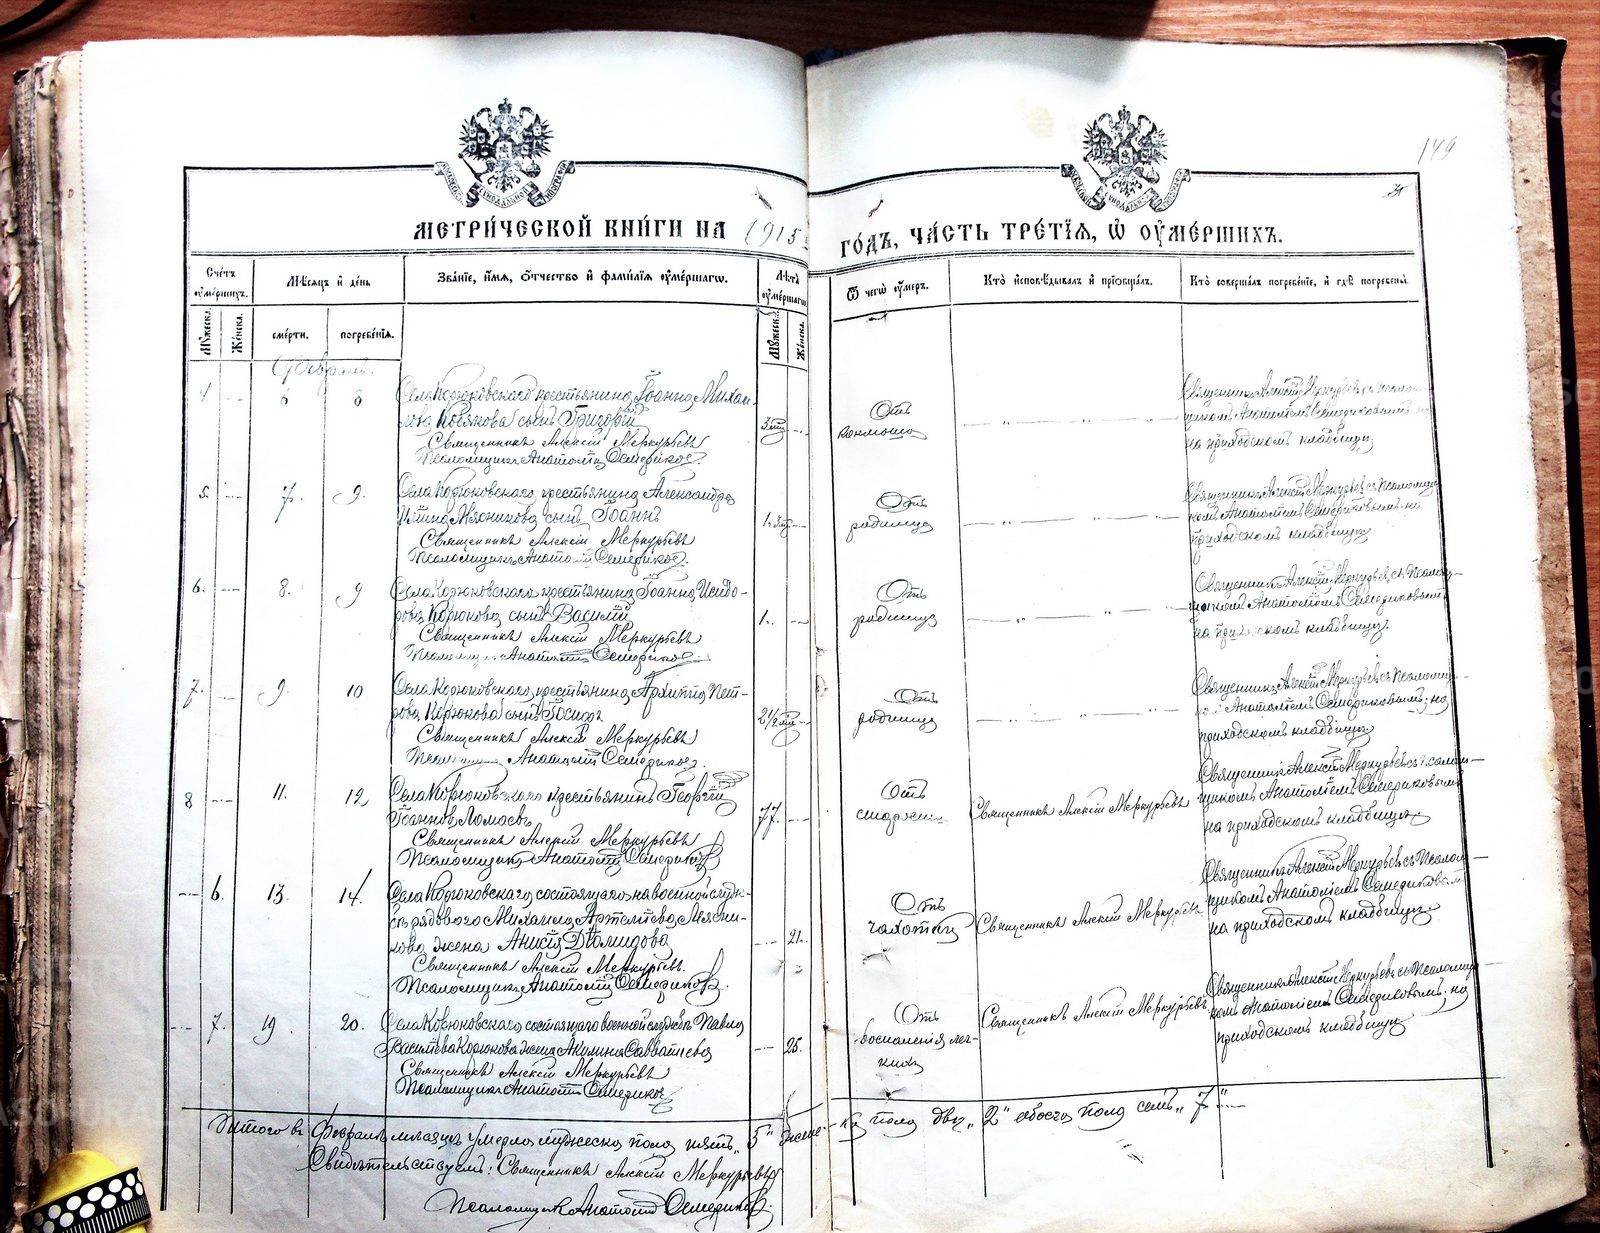 149
МЕТРИ́ЧЕСКОЙ КНИ́ГИ НА 1915
ГО́ДЪ, ЧА́СТЬ ТРЕ́ТІЯ, Ѿ ОУМЕ́РШИХЪ.
Сче́тъ оумершихъ.
Мѣсяцъ и день
Званіе, имя, отчество и фамилія оумершагѡ.
Лѣта оумершагѡ
Мужеска.
Женска.
смерти.
погребенія.
Мужеска.
Женска.
Ѿ чегѡ оумеръ.
Кто исповѣдывалъ и пріобщалъ.
Кто совершалъ погребеніе, и гдѣ погребены.
Февраль
4 6 8
Села Корюковскаго крестьянина Іоанна Михаи-
лова сынъ Григорій
Священникъ Алексій Меркурьевъ
Псаломщикъ Анатолій Семериковъ.
Отъ
Священникъ Алексій Меркурьевъ съ псалом-
щикомъ Анатоліемъ Семериковымъ на
на приходскомъ кладбищѣ
5. 7. 9.
Села Корюковскаго крестьянина Александра
Мясникова сынъ Іоаннъ
Священникъ Алексій Меркурьевъ
Псаломщикъ Анатолій Семериковъ.
Отъ
родимца
Священникъ Алексій Меркурьевъ съ псаломщи-
комъ Анатоліемъ Семериковымъ на
приходскомъ кладбищѣ
6. 8. 9
Села Корюковскаго крестьянина Іоанна Исидо-
рова Корюкова сынъ Василій
Священникъ Алексій Меркурьевъ
Псаломщикъ Анатолій Семериковъ.
1.
Отъ
родимца
Священникъ Алексій Меркурьевъ съ псалом-
щикомъ Анатоліемъ Семериковымъ
на приходскомъ кладбищѣ.
7. 9. 10
Села Корюковскаго крестьянина Архиппа Пет-
рова Корюкова сынъ Іосифъ
Священникъ Алексій Меркурьевъ
Псаломщикъ Анатолій Семериковъ.
2½
Отъ
родимца
Священникъ Алексій Меркурьевъ съ псаломщи-
комъ Анатоліемъ Семериковымъ на
приходскомъ кладбищѣ
8 11. 12
Села Корюковскаго крестьянинъ Георгій
Іоанновъ Ломаевъ
Священникъ Алексій Меркурьевъ
Псаломщикъ Анатолій Семериковъ
77.
Отъ
старости
Священникъ Алексій Меркурьевъ
Священникъ Алексій Меркурьевъ съ псалом-
щикомъ Анатоліемъ Семериковымъ
на приходскомъ кладбищѣ
6. 13. 14.
Села Корюковскаго состоящаго на военной служ-
бѣ рядового Михаила Артемьева Мясни-
кова жена Анисія Діомидова
Священникъ Алексій Меркурьевъ.
Псаломщикъ Анатолій Семериковъ.
21.
Отъ
чахотки
Священникъ Алексій Меркурьевъ
Священникъ Алексій Меркурьевъ съ псалом-
щикомъ Анатоліемъ Семериковымъ
на приходскомъ кладбищѣ
7. 19. 20.
Села Корюковскаго состоящаго военной службѣ Павла
Васильева Корюкова жена Акилина Савватиева
Священникъ Алексій Меркурьевъ
Псаломщикъ Анатолій Семериковъ
25.
Отъ
воспаленія лег-
кихъ
Священникъ Алексій Меркурьевъ
Священникъ Алексій Меркурьевъ съ псаломщи-
комъ Анатоліемъ Семериковымъ на
приходскомъ кладбищѣ
Итого въ Февралѣ мѣсяцѣ умерло мужеска пола пять „5" женска пола два „2" обоего пола семь „7"
Свидѣтельствуемъ: Священникъ Алексій Меркурьевъ
Псаломщикъ Анатолій Семериковъ